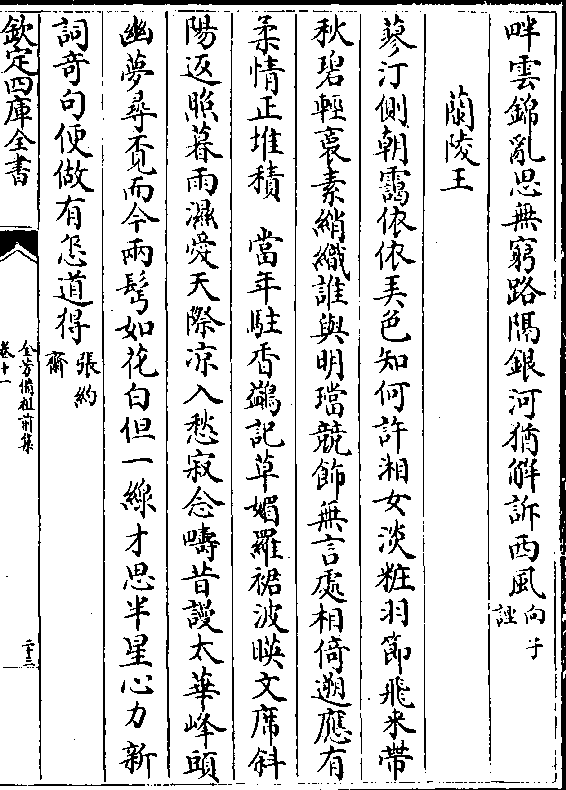 畔雲錦亂思無窮路隔銀河猶解訴西風向子
諲
蘭陵王
蓼汀側朝靄依依弄色知何許湘女淡粧羽節飛來帶
秋碧輕裛素綃織誰與明璫競飾無言處相倚遡應有
柔情正堆積　當年駐香鷁記草媚羅裙波映文席斜
陽返照暮雨濕愛天際凉入愁寂念疇昔謾太華峰頭
幽夢尋覔而今兩髩如花白但一線才思半星心力新
詞奇句便做有怎道得張約
齋
欽定四庫全書
全芳備祖前集
卷十一
二十三